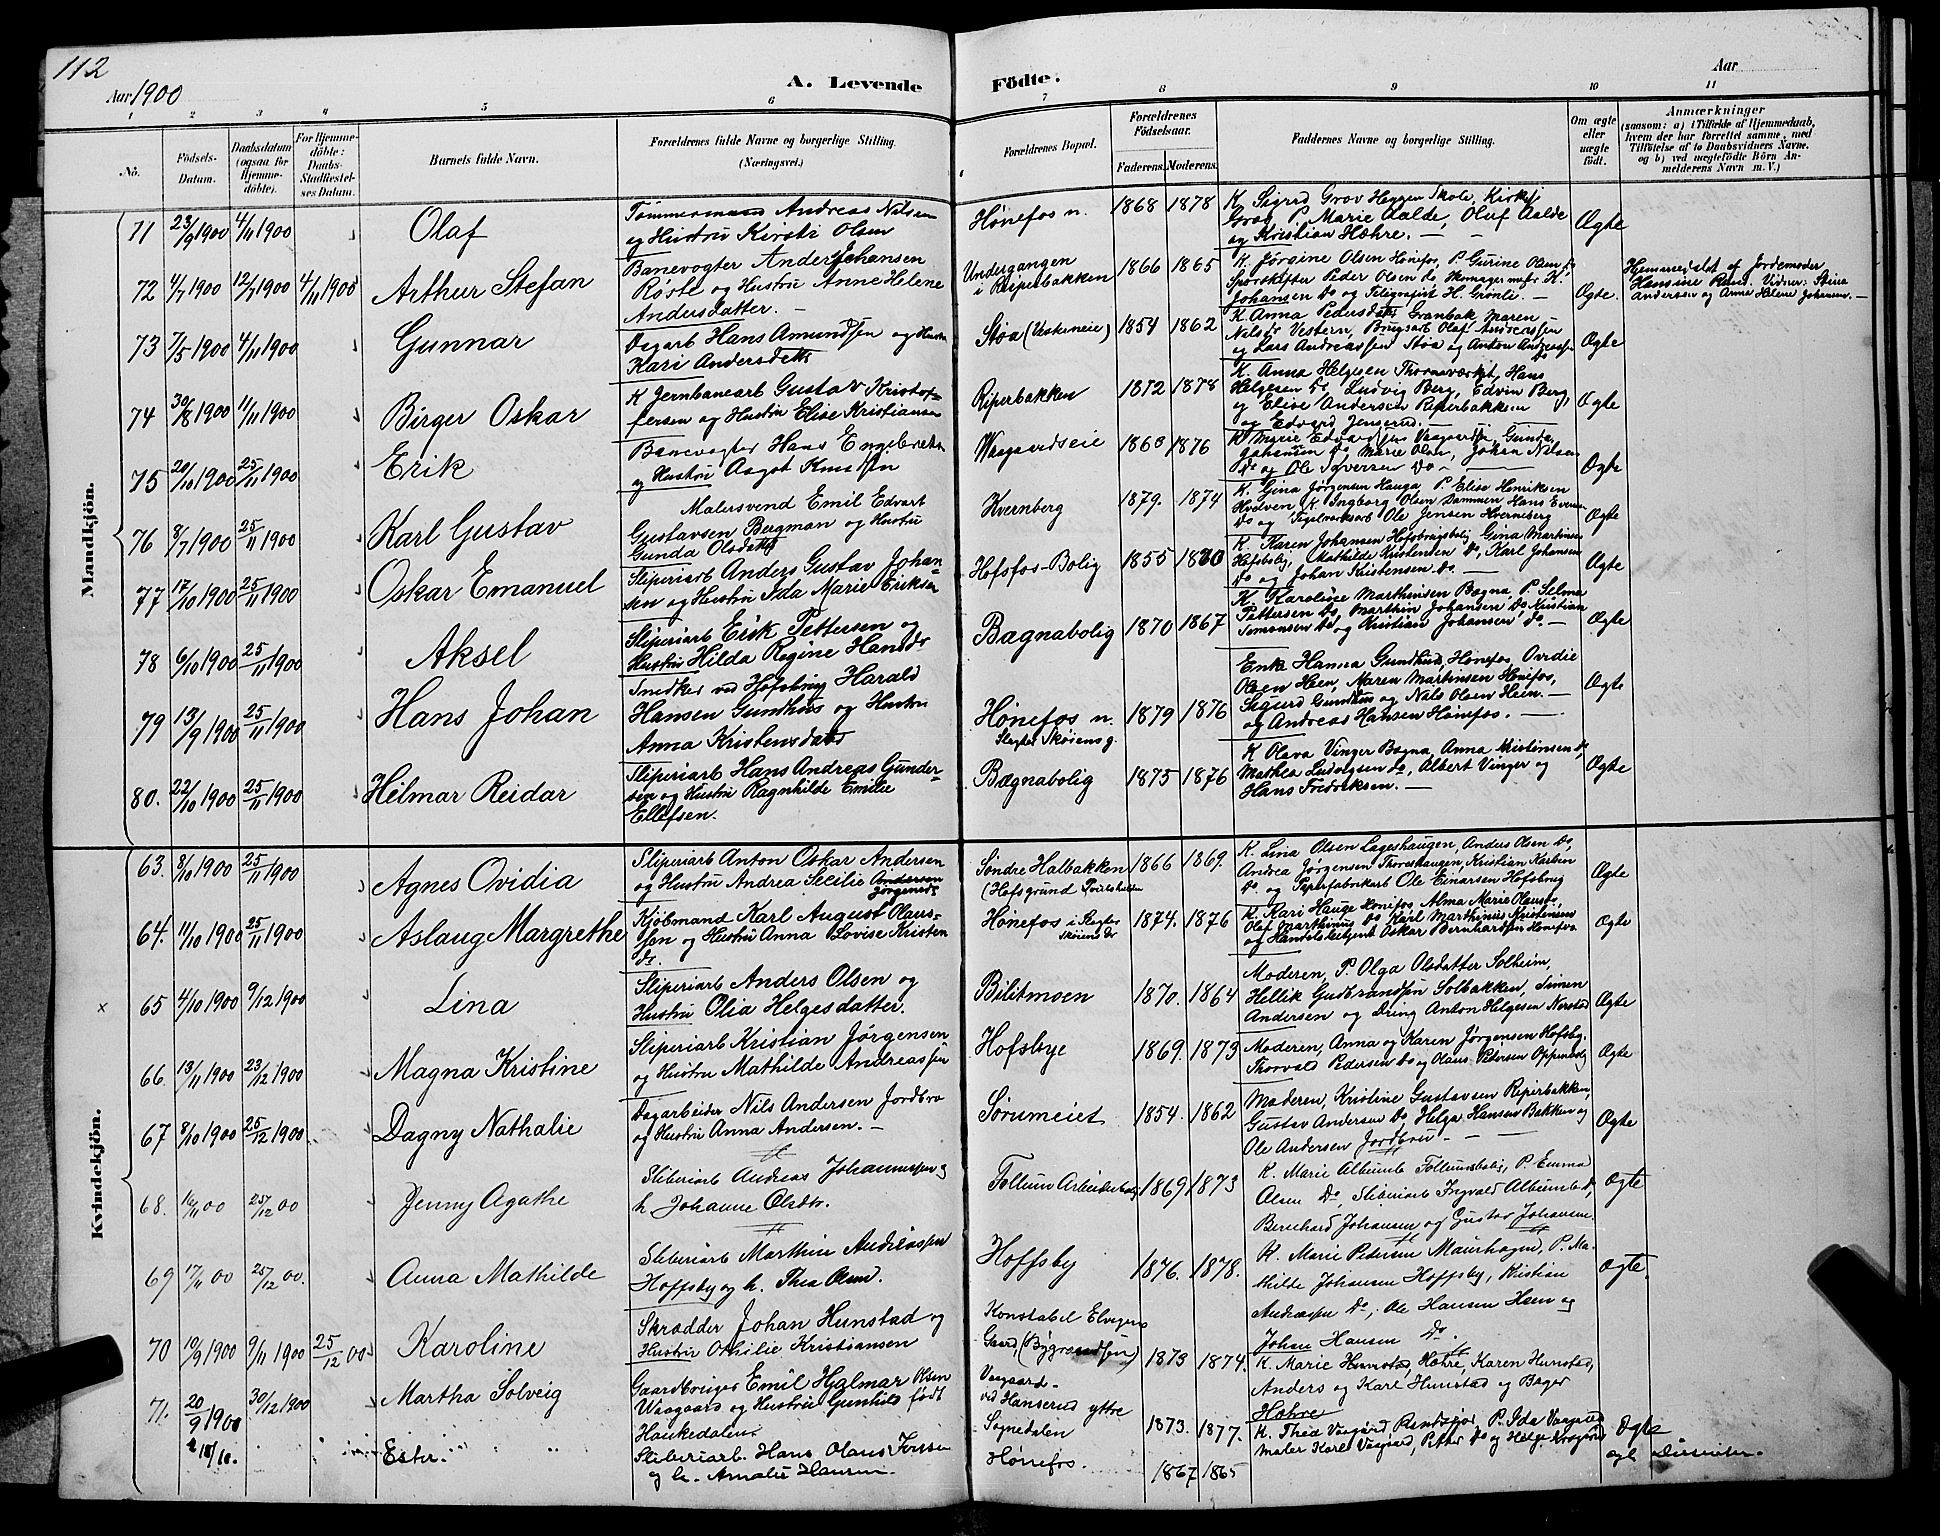 112
Aar 1900
A. Levende Födte.
Aar
1 2 3 4 5 6 7 8 9 10 11
No.
Födsels-Datum.
Daabsdatum (ogsaa for Hjemmedöbte).
For Hjemmedöbte: Daabs-Stadfæstelses Datum.
Barnets fulde Navn.
Forældrenes fulde Navne og borgerlige Stilling.
(Næringsvei.)
Forældrenes Bopæl.
Forældrenes Födselsaar.
Faderens. Moderens.
Faddernes Navne og borgerlige Stilling.
Om ægte eller uægte födt.
Anmærkninger
(saasom: a) i Tilfælde af Hjemmedaab, hvem der har forrettet samme, med Tilföielse af to Daabsvidners Navne, og b) ved uægtefödte Börn Anmelderens Navn m. V.)
Mandkjön.
71 23/9 1900 4/11 1900 Olaf
Tømmermand Andreas Nilsen
og Hustru Kersti Olsen
Hønefos n. 1868 1878
K. Sigrid Grov Heggen Skole, Kirkesj
Grov, P. Marie Aalde, Oluf Aalde
og Kristian Hæhre. Ægte
72 4/7 1900 12/7 1900 4/11 1900 Arthur Stefan
Banevogter Anders Johansen
Røste og Hustru Anne Helene
Andersdatter.
Undergangen
i Riperbakken 1866 1865
K. Jørgine Olsen Hønefos, P. Gurine Olsen do
Sporskifter Peder Olsen do
Johansen do og Telegrafist H. Grønli. Ægte.
Hjemmedøbt af Jordemoder
Hansine Ruud. Vidner: Stina
Andersen og Anne Helene Johansen.
73 7/5 1900 4/11 1900 Gunnar
Dagarb Hans Amundsen og Hustru
Kari Andersdatter
Støa (Vesterneie) 1854 1862
K. Anna Pedersdatter Granbak, Maren
Nilsdr Vestern, Brugsarb Olaf Andreassen
og Lars Andreassen Støa og Anton Andreassen do Ægte
74 30/8 1900 11/11 1900 Birger Oskar
K Jernbanearb Gustav Kristof-
fersen og Hustru Elise Kristiansen
Riperbakken 1872 1878
K. Anna Helgesen Thornsværket, Hans
Helgesen do, Ludvig Berg, Edvin Berg,
og Elise Andersen Riperbakken
og Edvard Jenserud. Ægte
75 20/10 1900 25/11 1900 Erik
Banevogter Hans Engebretsen
og Hustru Aagot Knudsen
Waagaardseie 1860 1876
K. Marie Edvardsen Vaagaard, Gunda
Johansen do, Marie Olsen, Johan Nilsen
do og Ole Iversen do. Ægte
76 8/7 1900 25/11 1900 Karl Gustav
Malersvend Emil Edvart
Gustavsen Bergman og Hustru
Gunda Olsdatter
Kvernberg 1879. 1874
K. Gina Jørgensen Hauga, P. Elise Henriksen
Hvelven, K. Ingborg Olsen Dammen, Hans Evensen
do og Teglverksarb Ole Jensen Hvernberg Ægte
77 17/10 1900 25/11 1900 Oskar Emanuel
Sliperiarb Anders Gustav Johan-
sen og Hustru Ida Marie Eriksen
Hofsfos-Bolig 1855 1860
K. Karen Johansen Hofsbrugsbolig, Gina Martinsen
Hofsbolig, Mathilde Kristensen do, Karl Johansen
do og Johan Kristensen do. Ægte
78 6/10 1900 25/11 1900 Aksel
Sliperiarb Erik Pettersen og
Hustru Hilda Regine Hansdr
Bægnabolig 1870 1867
K. Karoline Marthinsen Bægna, P. Selma
Pettersen do, Marthin Johansen do, Kristian
Simonsen do og Kristian Johansen do. Ægte
79 13/9 1900 25/11 1900 Hans Johan
Snedker ved Hofsbrug Harald
Hansen Gundhus og Hustru
Anna Kristensdatter
Hønefos n.
Slagter Skøiens g. 1879 1876
Enke Hanna Gundhus, Hønefos, Ovidie
Olsen Heen, Maren Martinsen Hønefos,
Sigurd Gundhus og Nils Olsen Heen.
og Andreas Hansen Hønefos. Ægte
80. 22/10 1900 25/11 1900 Hilmar Reidar
Sliperiarb Hans Andreas Gunder-
sen og Hustru Ragnhilde Emilie
Ellefsen.
Bægnabolig 1875 1876
K Olava Vinger Bægna, Anna Kristinsen do
Mathea Ludvigsen do, Albert Vinger og
Hans Fredriksen. Ægte
Kvindekjön.
63. 8/10 1900 25/11 1900 Agnes Ovidia
Sliperiarb Anton Oskar Andersen
og Hustru Andrea Secilie Andersen
Jørgensdr
Søndre Halbakken
(Hofsgrund 1866 1869.
K. Lina Olsen Lageshaugen, Anders Olsen do,
Andrea Jørgensen Thoreshaugen, Kristian Karlsen
do. og Paperfabrikarb Ole Einarsen Hofsbrug Ægte
64. 11/10 1900 25/11 1900 Aslaug Margrethe
Kjøbmand Karl August Olaus-
sen og Hustru Anna Lovise Kristen
dr.
Hønefos i Slagter
Skøiens Gr 1874. 1876
K. Kari Hauge Hønefos, Alma Marie Olausdr,
Olaf Marthinius do Karl Marthinius Kristensens
og Handelsbetjent Oskar Bernhardsen Hønefos Ægte
x 65 4/10 1900 9/12 1900 Lina
Sliperiarb Anders Olsen og
Hustru Olia Helgesdatter.
Bilitmoen 1870. 1864
Moderen, P. Olga Olsdatter Solheim,
Hellik Gudbrandsen Solbakken, Simen
Andersen og Dreng Anton Helgesen Nerstad Ægte
66. 13/11 1900 23/12 1900 Magna Kristine
Sliperiarb Kristian Jørgensen
og Hustru Mathilde Andreassen
Hofsbye 1869. 1873
Moderen, Anna og Karen Jørgensen Hofsby.
Thorvald Pedersen do og Olaus Petersen Oppenbolig Ægte
67 8/10 1900 25/12 1900 Dagny Nathalie
Dagarbeider Nils Andersen Jordbro
og Hustru Anna Andersen.
Sørumeiet 1854. 1862
Moderen, Kristine Gustavsen Riperbakken,
Gustav Andersen do, Helga Hansen Bakken og
Ole Andersen Jordbru Ægte
68. 16/11 00 25/12 00 Jenny Agathe
Sliberiarb Andreas Johannessen og
h. Johanne Olsdtr.
Follum Arbeiderbolig 1869 1873
K. Marie Albumb Follumsbolig, P. Emma
Olsen do, Sliberiarb Ingvald Albumb do,
Bernhard Johansen og Gustav Johansen. Ægte
69 17/11 00 25/12 00. Anna Mathilde
Sliberiarb Marthin Andreassen
Hoffsby og h. Thea Olsen.
Hoffsby 1876. 1878.
K. Marie Petersen Maurhagen, P. Ma-
thilde Johansen Hoffsby, Kristian
Andreassen do, Ole Hansen Heen og
Johan Hansen do. Ægte.
70 10/9 1900 9/11 1900 25/12 00 Karoline
Skrædder Johan Hunstad og
Hustru Othilie Kristiansen
Konstabel Elvigens
Gaard (Bygrændsen) 1873 1874.
K. Marie Hunstad, Hæhre, Karen Hunstad,
Anders og Karl Hunstad og Bager
Hæhre
71. 20/9 1900 30/12 1900 Martha Solveig
Gaardbruger Emil Hjalmar Olsen
Waagaard og Hustru Gunhild født
Haukedalen.
Vaagaard
ved Hanserud yttre
Sognedalen 1873. 1877.
K. Thea Vaagård Randsfjor, P. Ida Vaagaard
Maler Karl Vaagaard, Petter do og Helge Vaagaard Ægte
11/10. Ester.
Sliberiarb. Hans Olaus Jensen
og h. Amalie Hansen
Hønefos. 1867 1865 ægt Dissenter.